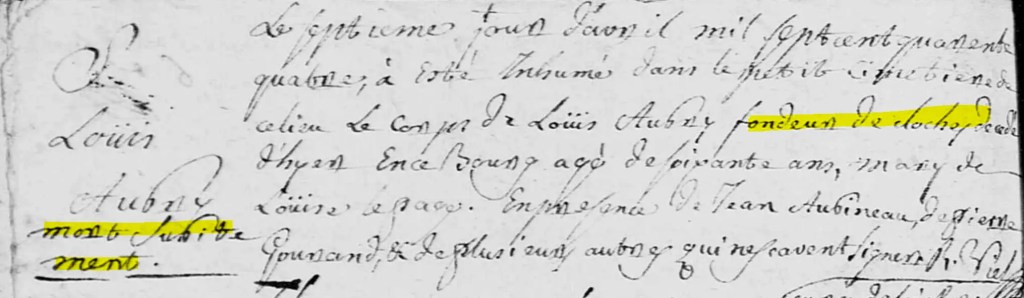 Le septieme jour d'avril mil sept cent quarente
quatre, à esté Inhumé dans le petit Cimetiere de
ce lieu Le Corps de Loüis Aubry fondeur de cloches decedé
d'hyer Ence Bourg agé de soixante ans, mary de
Loüise lepage. En presence de Jean Aubineau, de pierre
Gourand, & de plusieurs autres qui ne scavent signer
Loüis
Aubry
mort subite
ment.